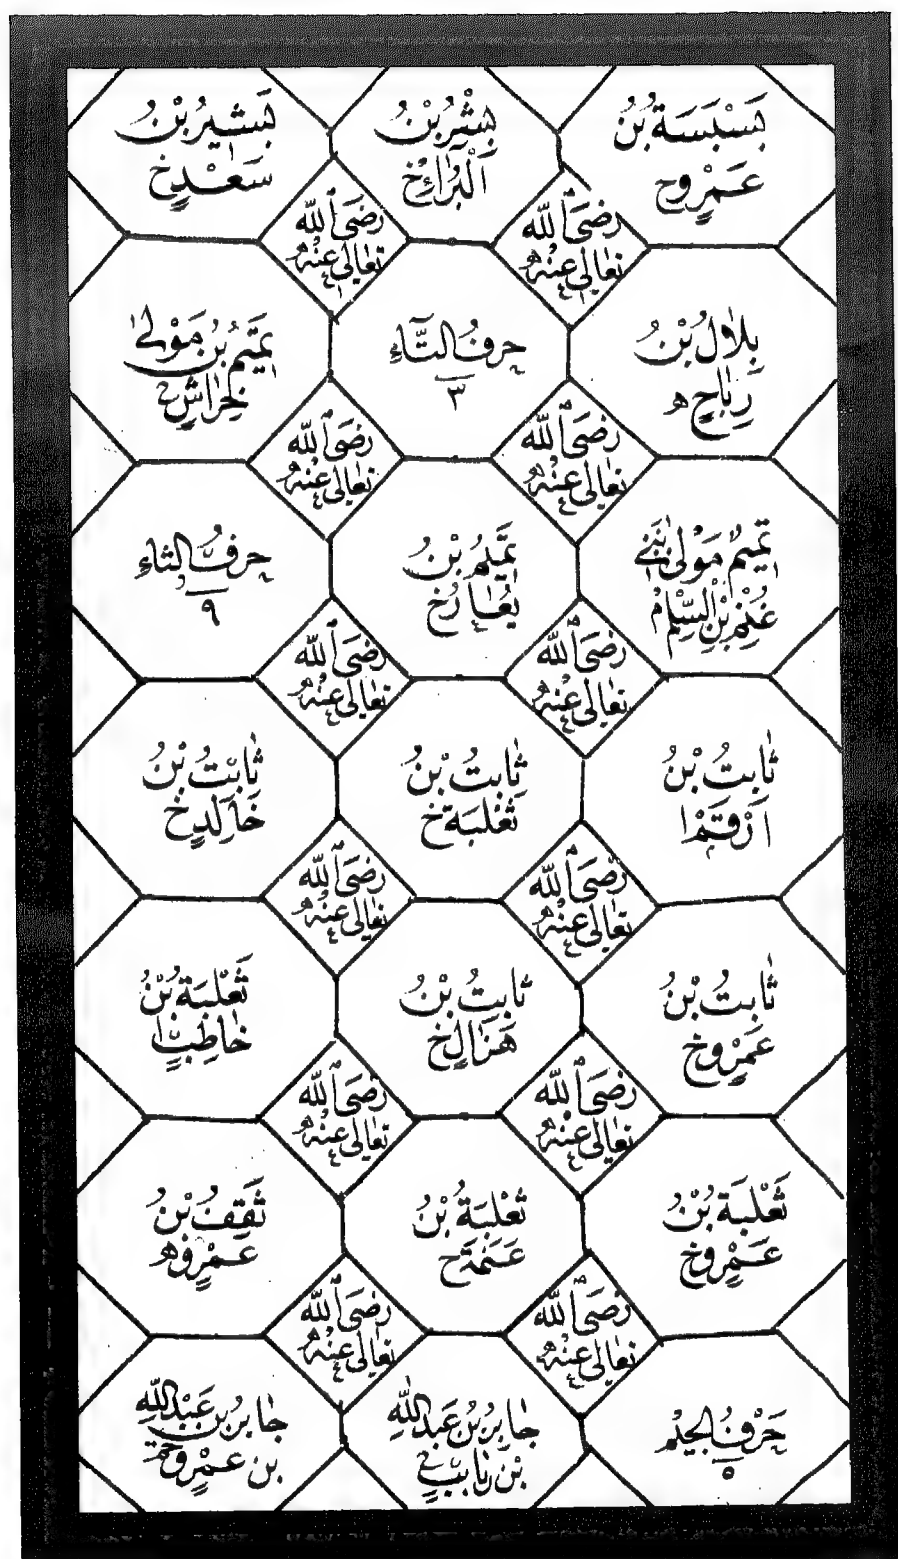 بَسْبَسَةُ بْنُ
عَمْرٍو خ
بِشْرُ بْنُ
الْبَرَاءِ خ
بَشِيرُ بْنُ
سَعْدٍ خ
رَضِيَ اللّٰه
تَعَالٰى عَنْهُ
رَضِيَ اللّٰه
تَعَالٰى عَنْهُ
بِلَالُ بْنُ
رِبَاحٍ ه
حرفُ التَّاءِ
٣
تَمِيمُ بْنُ مَوْلٰى
خِرَاشٍ
رَضِيَ اللّٰه
تَعَالٰى عَنْهُ
رَضِيَ اللّٰه
تَعَالٰى عَنْهُ
تَمِيمٌ مَوْلٰى بَنِي
غُنْمِ بْنِ السِّلْمِ
تَمِيمُ بْنُ
يُعَارُ خ
حرفُ الثاءِ
٩
رَضِيَ اللّٰه
تَعَالٰى عَنْهُ
رَضِيَ اللّٰه
تَعَالٰى عَنْهُ
ثَابِتُ بْنُ
اَرْقَمْ ا
ثَابِتُ بْنُ
ثَعْلَبَةَ خ
ثَابِتُ بْنُ
خَالِدٍ خ
رَضِيَ اللّٰه
تَعَالٰى عَنْهُ
رَضِيَ اللّٰه
تَعَالٰى عَنْهُ
ثَابِتُ بْنُ
عَمْرٍو خ
ثَابِتُ بْنُ
هَزَالٍ خ
ثَعْلَبَةُ بْنُ
حَاطِبٍ ا
رَضِيَ اللّٰه
تَعَالٰى عَنْهُ
رَضِيَ اللّٰه
تَعَالٰى عَنْهُ
ثَعْلَبَةُ بْنُ
عَمْرٍو خ
ثَعْلَبَةُ بْنُ
عَنَمَةَ ح
ثَقِفُ بْنُ
عَمْرٍو ه
رَضِيَ اللّٰه
تَعَالٰى عَنْهُ
رَضِيَ اللّٰه
تَعَالٰى عَنْهُ
حَرْفُ الجِيْم
٥
جَابِرُ بْنُ عَبْدِ اللّٰهِ
بْنِ رَيَابٍ
جَابِرُ بْنُ عَبْدِ اللّٰهِ
بن عَمْرٍو خ